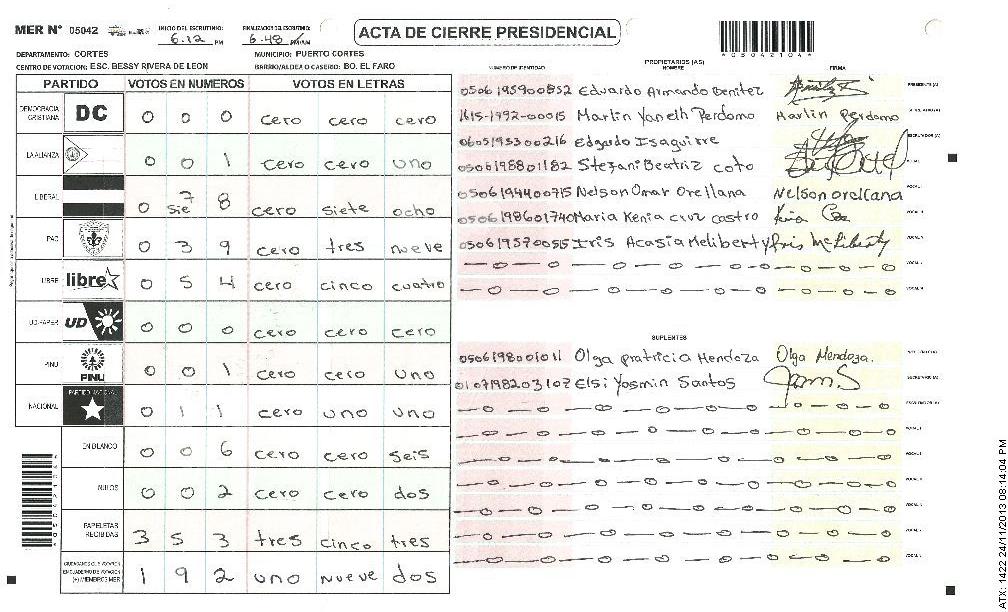 MER Nº 05042
INICIO DEL ESCRUTINIO: 6:12 PM
FINALIZACION DEL ESCRUTINIO: 6:48 PM/AM
ACTA DE CIERRE PRESIDENCIAL
*05042104*
DEPARTAMENTO: CORTES MUNICIPIO: PUERTO CORTES
CENTRO DE VOTACION: ESC. BESSY RIVERA DE LEON BARRIO/ALDEA O CASERIO: BO. EL FARO
PARTIDO VOTOS EN NUMEROS VOTOS EN LETRAS
DEMOCRACIA CRISTIANA DC 0 0 0 cero cero cero
LA ALIANZA 0 0 1 cero cero uno
LIBERAL 0 7 sie 8 cero siete ocho
PAC 0 3 9 cero tres nueve
LIBRE libre 0 5 4 cero cinco cuatro
UD-FAPER UD 0 0 0 cero cero cero
PINU PINU 0 0 1 cero cero uno
NACIONAL PARTIDO NACIONAL 0 1 1 cero uno uno
EN BLANCO 0 0 6 cero cero seis
NULOS 0 0 2 cero cero dos
PAPELETAS RECIBIDAS 3 5 3 tres cinco tres
CIUDADANOS QUE VOTARON EN CUADERNO DE VOTACION (+) MIEMBROS MER 1 9 2 uno nueve dos
PROPIETARIOS (AS)
NUMERO DE IDENTIDAD NOMBRE FIRMA
0506195900852 Eduardo Armando Benitez PRESIDENTE (A)
1615-1992-00015 Marlin Yaneth Perdomo Marlin Perdomo SECRETARIO (A)
0605195300216 Edgardo Isaguirre ESCRUTADOR (A)
0506198801182 Stefani Beatriz coto VOCAL I
0506194400715 Nelson Omar Orellana Nelson orellana VOCAL II
0506198601740 Maria Kenia cruz castro
0506195700515 Iris Acasia Meliberty Iris Meliberty
SUPLENTES
0506198001011 Olga pratricia Mendoza Olga Mendoza.
0107198203107 Elsi Yosmin Santos SECRETARIO (A)
ESCRUTADOR (A)
ATX: 1422 24/11/2013 08:14:04 PM